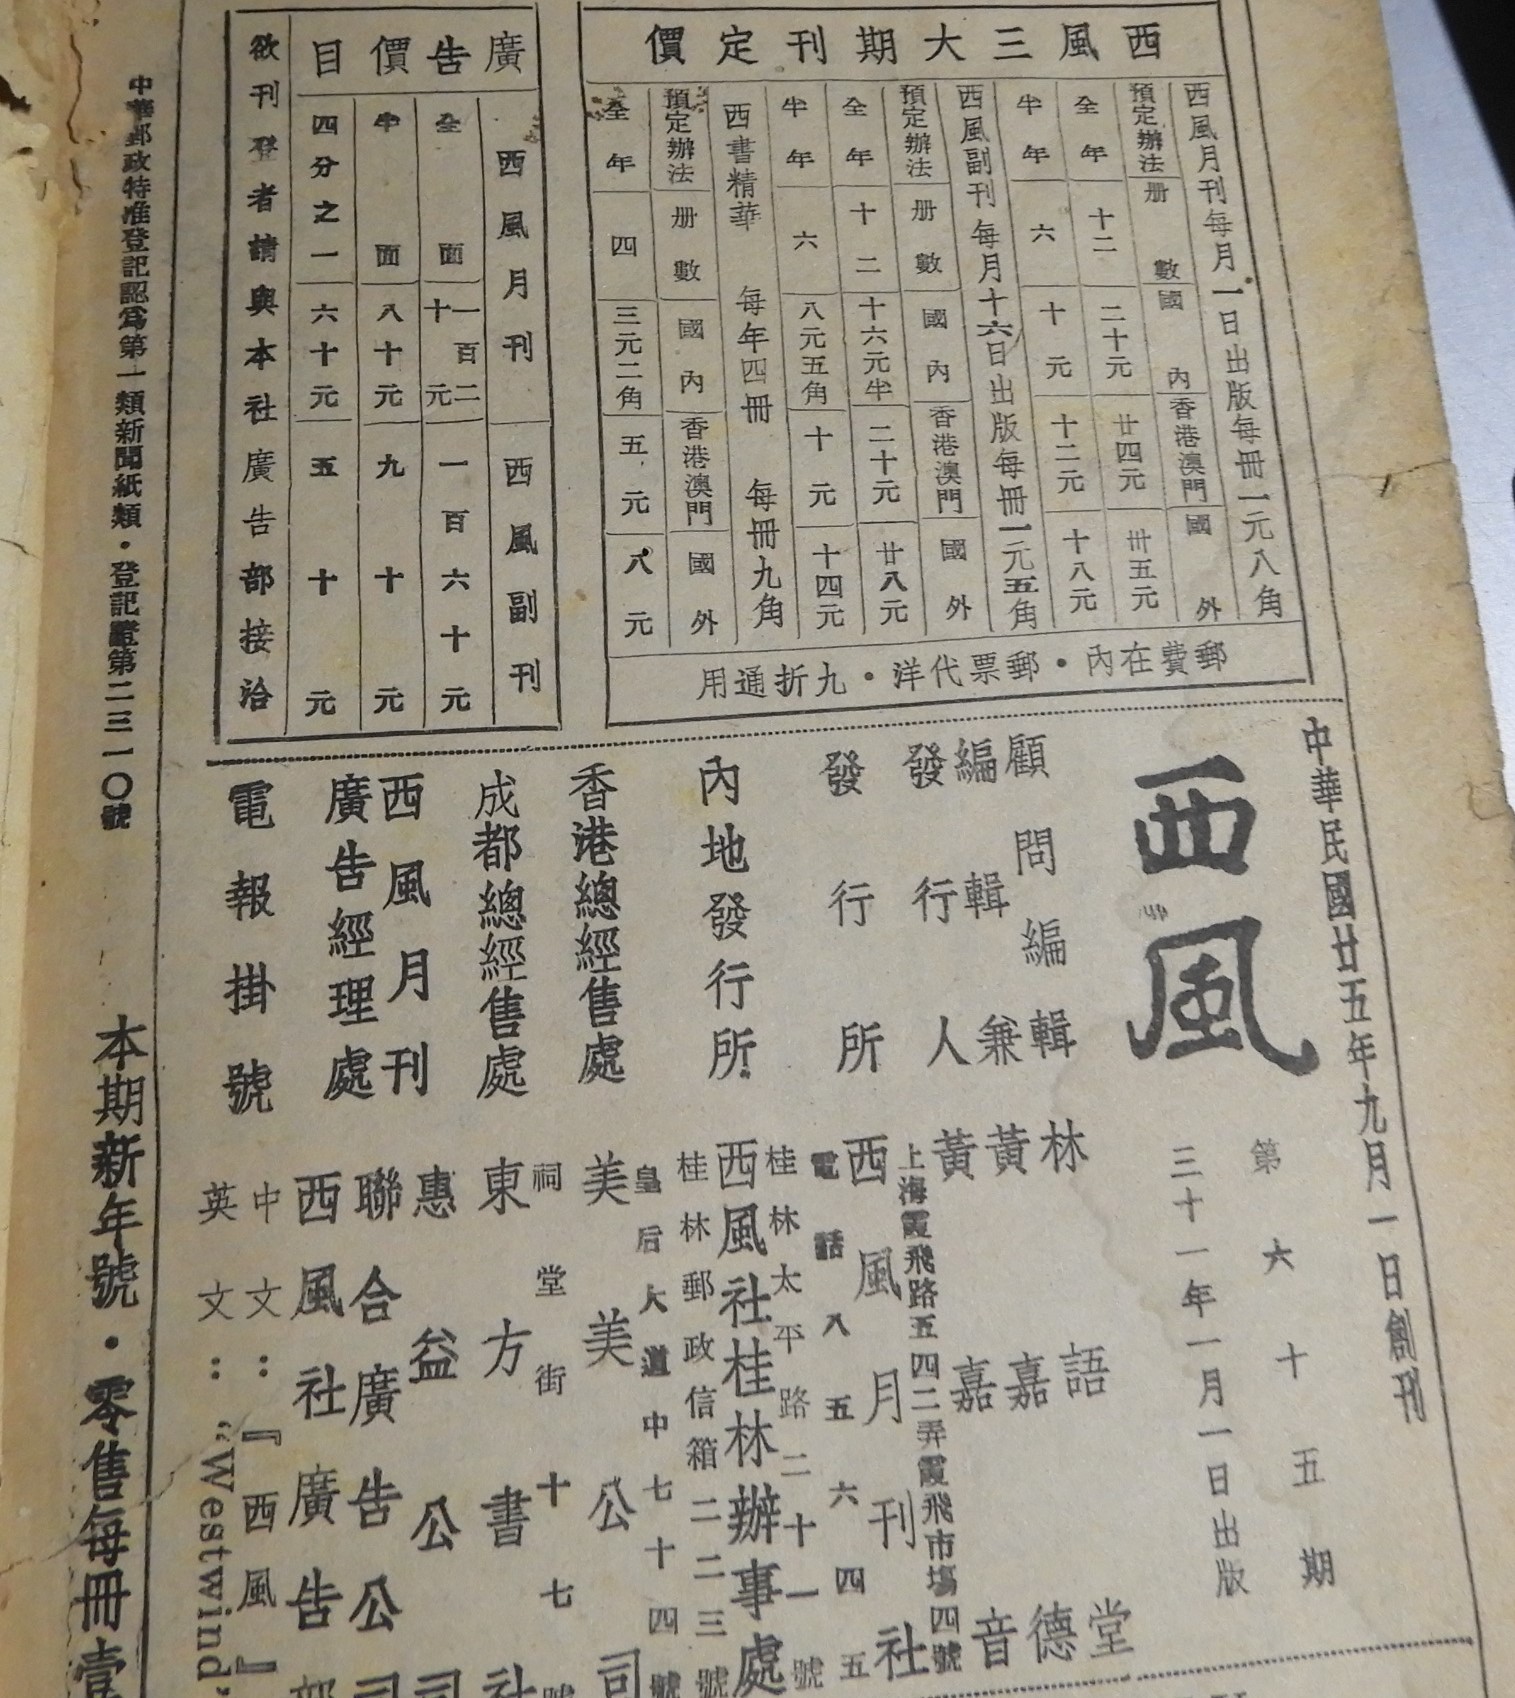 西風三大期刊定價
西風月刊 每月一日出版 每冊一元八角
預定辦法 册數 國內 香港澳門 國外
全年 十二 二十元 廿四元 卅五元
半年 六 十元 十二元 十八元
西風副刊 每月十六日出版 每冊一元五角
預定辦法 册數 國內 香港澳門 國外
全年 十二 十六元半 二十元 廿八元
半年 六 八元五角 十元 十四元
西書精華 每年四冊 每冊九角
預定辦法 册數 國內 香港澳門 國外
全年 四 三元二角 五元 八元
郵費在內・郵票代洋・九折通用
廣告價目
西風月刊 西風副刊
全面 一百二十元 一百六十元
半面 八十元 九十元
四分之一 六十元 五十元
欲刊登者請與本社廣告部接洽
中華民國廿五年九月一日創刊
西風
第六十五期
三十一年一月一日出版
顧問編輯 林語堂
編輯兼 黃嘉德
發行人 黃嘉音
上海霞飛路五四二弄霞飛市塲四號
發行所 西風月刊社
電話八五六四五
桂林太平路二十一號
內地發行所 西風社桂林辦事處
桂林郵政信箱二二三號
皇后大道中七十四號
香港總經售處 美美公司
祠堂街十七號
成都總經售處 東方書社
惠益公司
西風月刊 聯合廣告公司
廣告經理處 西風社廣告部
電報掛號 中文：『西風』
英文：“Westwind”
中華郵政特准登記認爲第一類新聞紙類・登記證第二三一〇號
本期新年號・零售每冊壹